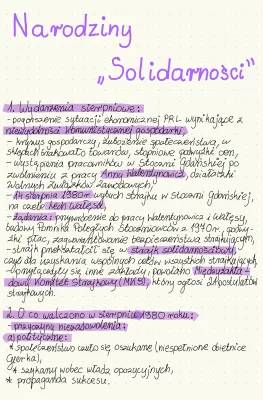 Narodziny
„Solidarności"
1. Wydarzenia sierpniowe:
- pogorszenie sytuacji ekonomicznej PRL wynikające z
niewydolności komunistycznej gospodarki,
- kryzys gospodarczy, zubożenie społeczeństwa, w
sklepach brakowało towarów, stopniowe podwyżki cen,
- wystąpienia pracowników w Stoczni Gdańskiej po
zwolnieniu z pracy Anny Walentynowicz, działaczki
Wolnych Związków Zawodowych,
- 14 sierpnia 1980r. wybuch strajku w Stoczni Gdańskiej,
na czele Lech Wałęsa,
- żądania: przywrócenie do pracy Walentynowicz i Wałęsy,
budowy Pomnika Poległych Stoczniowców z 1970r., podwy-
żki płac, zagwarantowanie bezpieczeństwa strajkującym,
- strajk przekształcił się w strajk solidarnościowy,
czyli dla uzyskania wspólnych celów wszystkich strajkujących,
- przyłączyły się inne zakłady, powołano Międzyzakła-
dowy Komitet Strajkowy (MKS), który ogłosił 21 postulatów
strajkowych.
2. O co walczono w sierpniu 1980 roku:
- przyczyny niezadowolenia:
a) polityczne:
* społeczeństwo czuło się oszukane (niespełnione obietnice
Gierka),
* szykany wobec władz opozycyjnych,
* propaganda sukcesu.